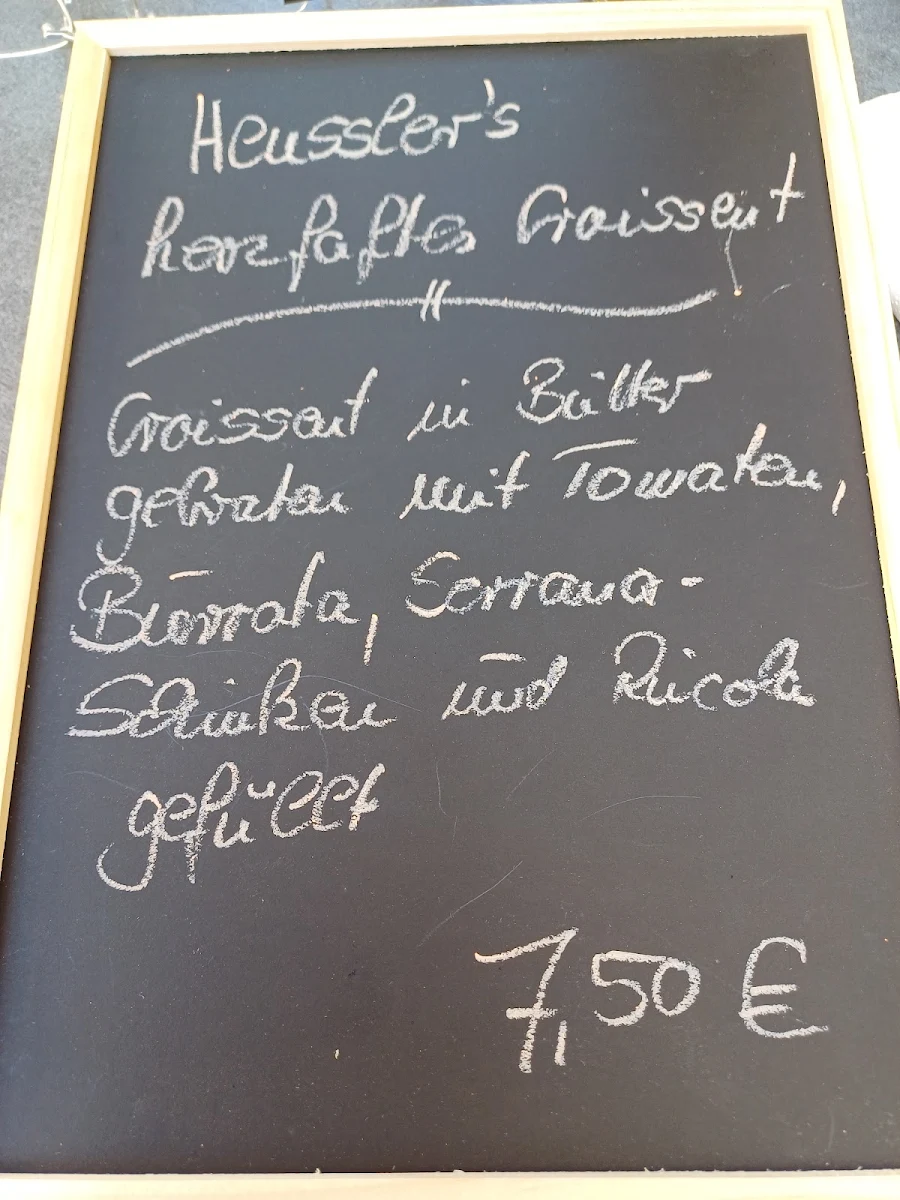 Heussler's
herzhaftes Croissant
Croissant in Butter
gebraten mit Tomaten,
Burrata, Serrano-
Schinken und Rucola
gefüllt
7,50 €